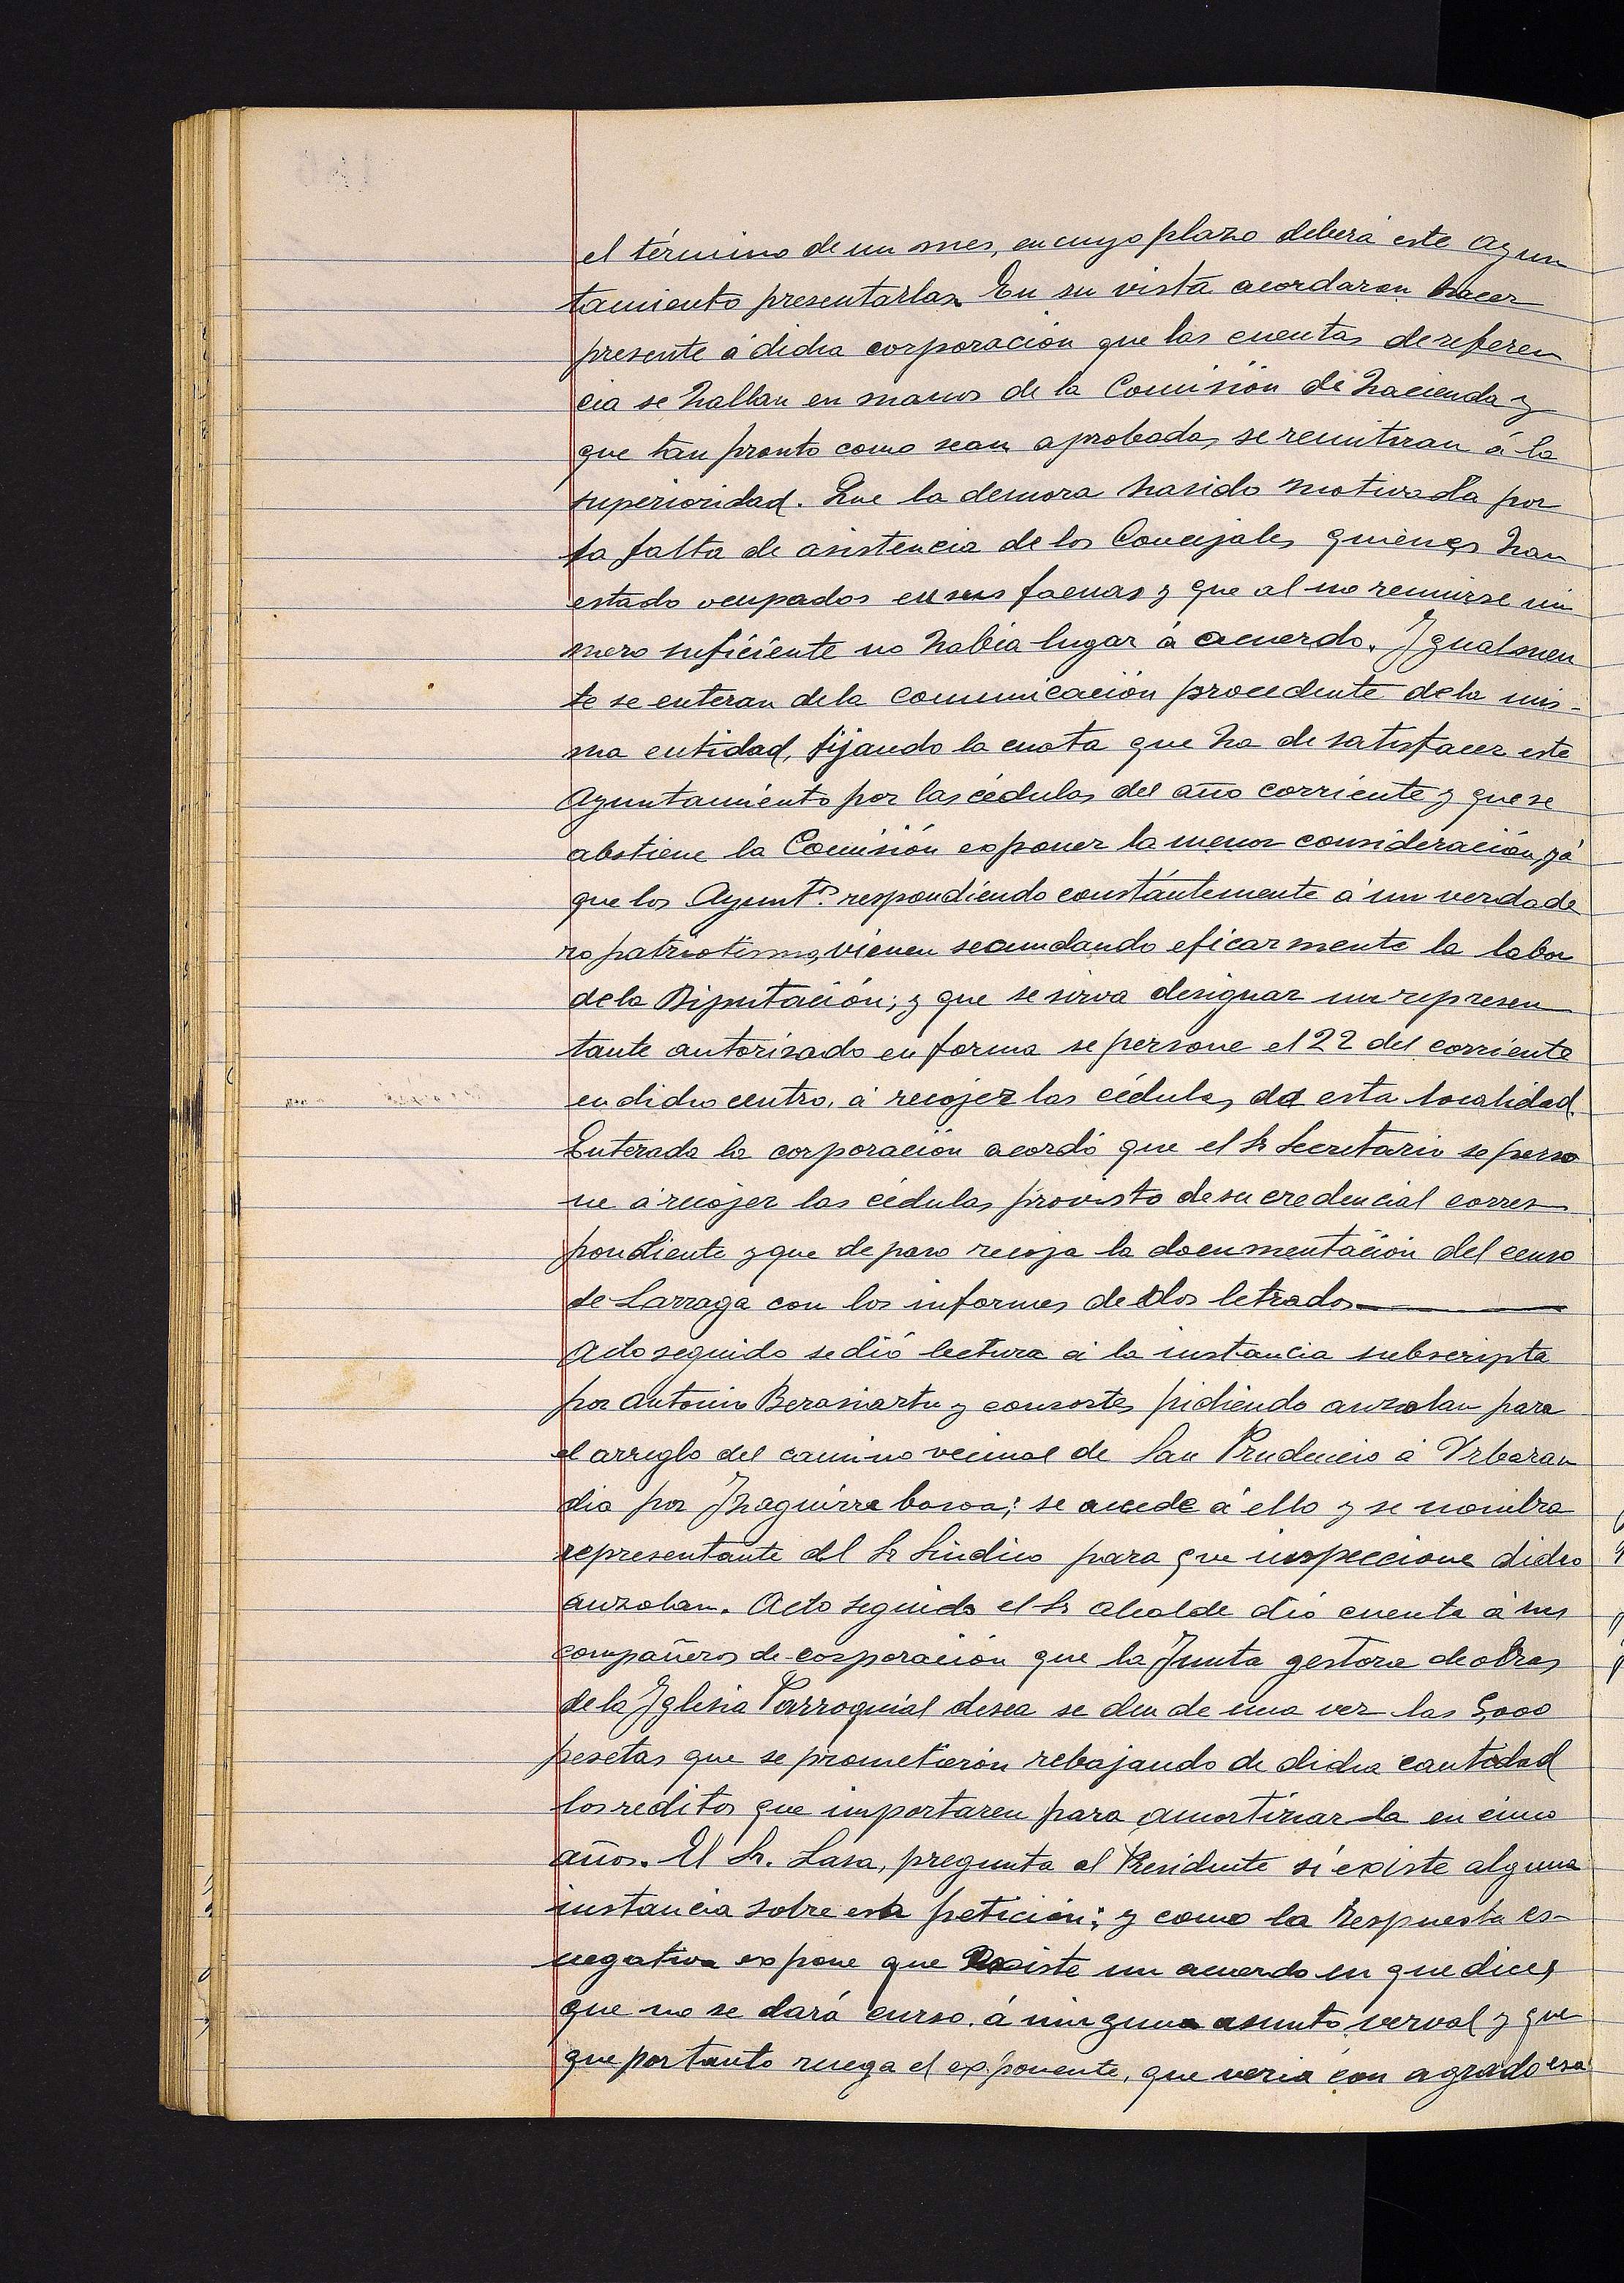 el término de un mes, en cuyo plazo deberá este Ayun
tamiento presentarlas. En su vista acordaron hacer
presente á dicha corporación que las cuentas de referen
cia se hallan en manos de la Comisión de hacienda y
que tan pronto como sean aprobadas se remitiran á la
superioridad. Que la demora ha sido motivada por
la falta de asistencia de los Concejales quienes han
estado ocupados en sus faenas y que al no reunirse nú
mero suficiente no había lugar á acuerdo. Igualmen
te se enteran de la comunicación procedente de la mis-
ma entidad, fijando la cuota que ha de satisfacer este
Ayuntamiento por las cédulas del año corriente y que se
abstiene la Comisión exponer la menor consideración, yá
que los Ayuntos. respondiendo constántemente á un verdade
ro patriotismo, vienen secundando eficazmente la labor
de la Diputación; y que se sirva designar un represen
tante autorizado en forma se persone el 22 del corriente
en dicho centro, á recojer las cédulas de esta localidad.
Enterada la corporación acordó que el Sr Secretario se perso
ne á recojer las cédulas provisto de su credencial corres
pondiente y que de paso recoja la documentación del censo
de Larraga con los informes de dos letrados
Acto seguido se dió lectura á la instancia subscripta
por Antonio Berasiartu y consortes pidiendo auzolan para
el arreglo del camino vecinal de San Prudencio á Urbaran
dia por Izaguirre basoa; se accede á ello y se nombra
representante al Sr Sindico para que inspeccione dicho
auzolan. Acto seguido el Sr alcalde dio cuenta á sus
compañeros de corporación que la Junta gestora de obras
de la Iglesia Parroquial desea se den de una vez las 5,000
pesetas que se prometieron rebajando de dicha cantidad
los reditos que importaren para amortizar la en cinco
años. El Sr. Lasa, pregunta al Presidente si existe alguna
instancia sobre esta petición; y como la respuesta es
negativa expone que existe un acuerdo en que dice,
que no se dará curso á ninguna asunto verval y que
que por tanto ruega el exponente, que veria con agrado esa